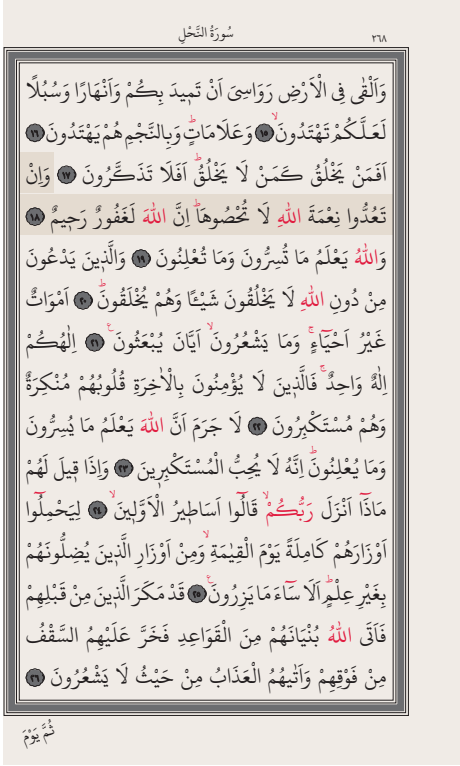 ٢٦٨ سُورَةُ النَّحْلِ
وَاَلْقٰى فِى الْاَرْضِ رَوَاسِىَ اَنْ تَمٖيدَ بِكُمْ وَاَنْهَارًا وَسُبُلًا
لَعَلَّكُمْ تَهْتَدُونَۙ ١٥ وَعَلَامَاتٍؕ وَبِالنَّجْمِ هُمْ يَهْتَدُونَ ١٦
اَفَمَنْ يَخْلُقُ كَمَنْ لَا يَخْلُقُؕ اَفَلَا تَذَكَّرُونَ ١٧ وَاِنْ
تَعُدُّوا نِعْمَةَ اللّٰهِ لَا تُحْصُوهَاؕ اِنَّ اللّٰهَ لَغَفُورٌ رَحٖيمٌ ١٨
وَاللّٰهُ يَعْلَمُ مَا تُسِرُّونَ وَمَا تُعْلِنُونَ ١٩ وَالَّذٖينَ يَدْعُونَ
مِنْ دُونِ اللّٰهِ لَا يَخْلُقُونَ شَيْـًٔا وَهُمْ يُخْلَقُونَؕ ٢٠ اَمْوَاتٌ
غَيْرُ اَحْيَٓاءٍۚ وَمَا يَشْعُرُونَۙ اَيَّانَ يُبْعَثُونَࣖ ٢١ اِلٰهُكُمْ
اِلٰهٌ وَاحِدٌۚ فَالَّذٖينَ لَا يُؤْمِنُونَ بِالْاٰخِرَةِ قُلُوبُهُمْ مُنْكِرَةٌ
وَهُمْ مُسْتَكْبِرُونَ ٢٢ لَا جَرَمَ اَنَّ اللّٰهَ يَعْلَمُ مَا يُسِرُّونَ
وَمَا يُعْلِنُونَؕ اِنَّهُ لَا يُحِبُّ الْمُسْتَكْبِرٖينَ ٢٣ وَاِذَا قٖيلَ لَهُمْ
مَاذَٓا اَنْزَلَ رَبُّكُمْۙ قَالُٓوا اَسَاطٖيرُ الْاَوَّلٖينَۙ ٢٤ لِيَحْمِلُٓوا
اَوْزَارَهُمْ كَامِلَةً يَوْمَ الْقِيٰمَةِۙ وَمِنْ اَوْزَارِ الَّذٖينَ يُضِلُّونَهُمْ
بِغَيْرِ عِلْمٍؕ اَلَا سَٓاءَ مَا يَزِرُونَࣖ ٢٥ قَدْ مَكَرَ الَّذٖينَ مِنْ قَبْلِهِمْ
فَاَتَى اللّٰهُ بُنْيَانَهُمْ مِنَ الْقَوَاعِدِ فَخَرَّ عَلَيْهِمُ السَّقْفُ
مِنْ فَوْقِهِمْ وَاَتٰيهُمُ الْعَذَابُ مِنْ حَيْثُ لَا يَشْعُرُونَ ٢٦
ثُمَّ يَوْمَ